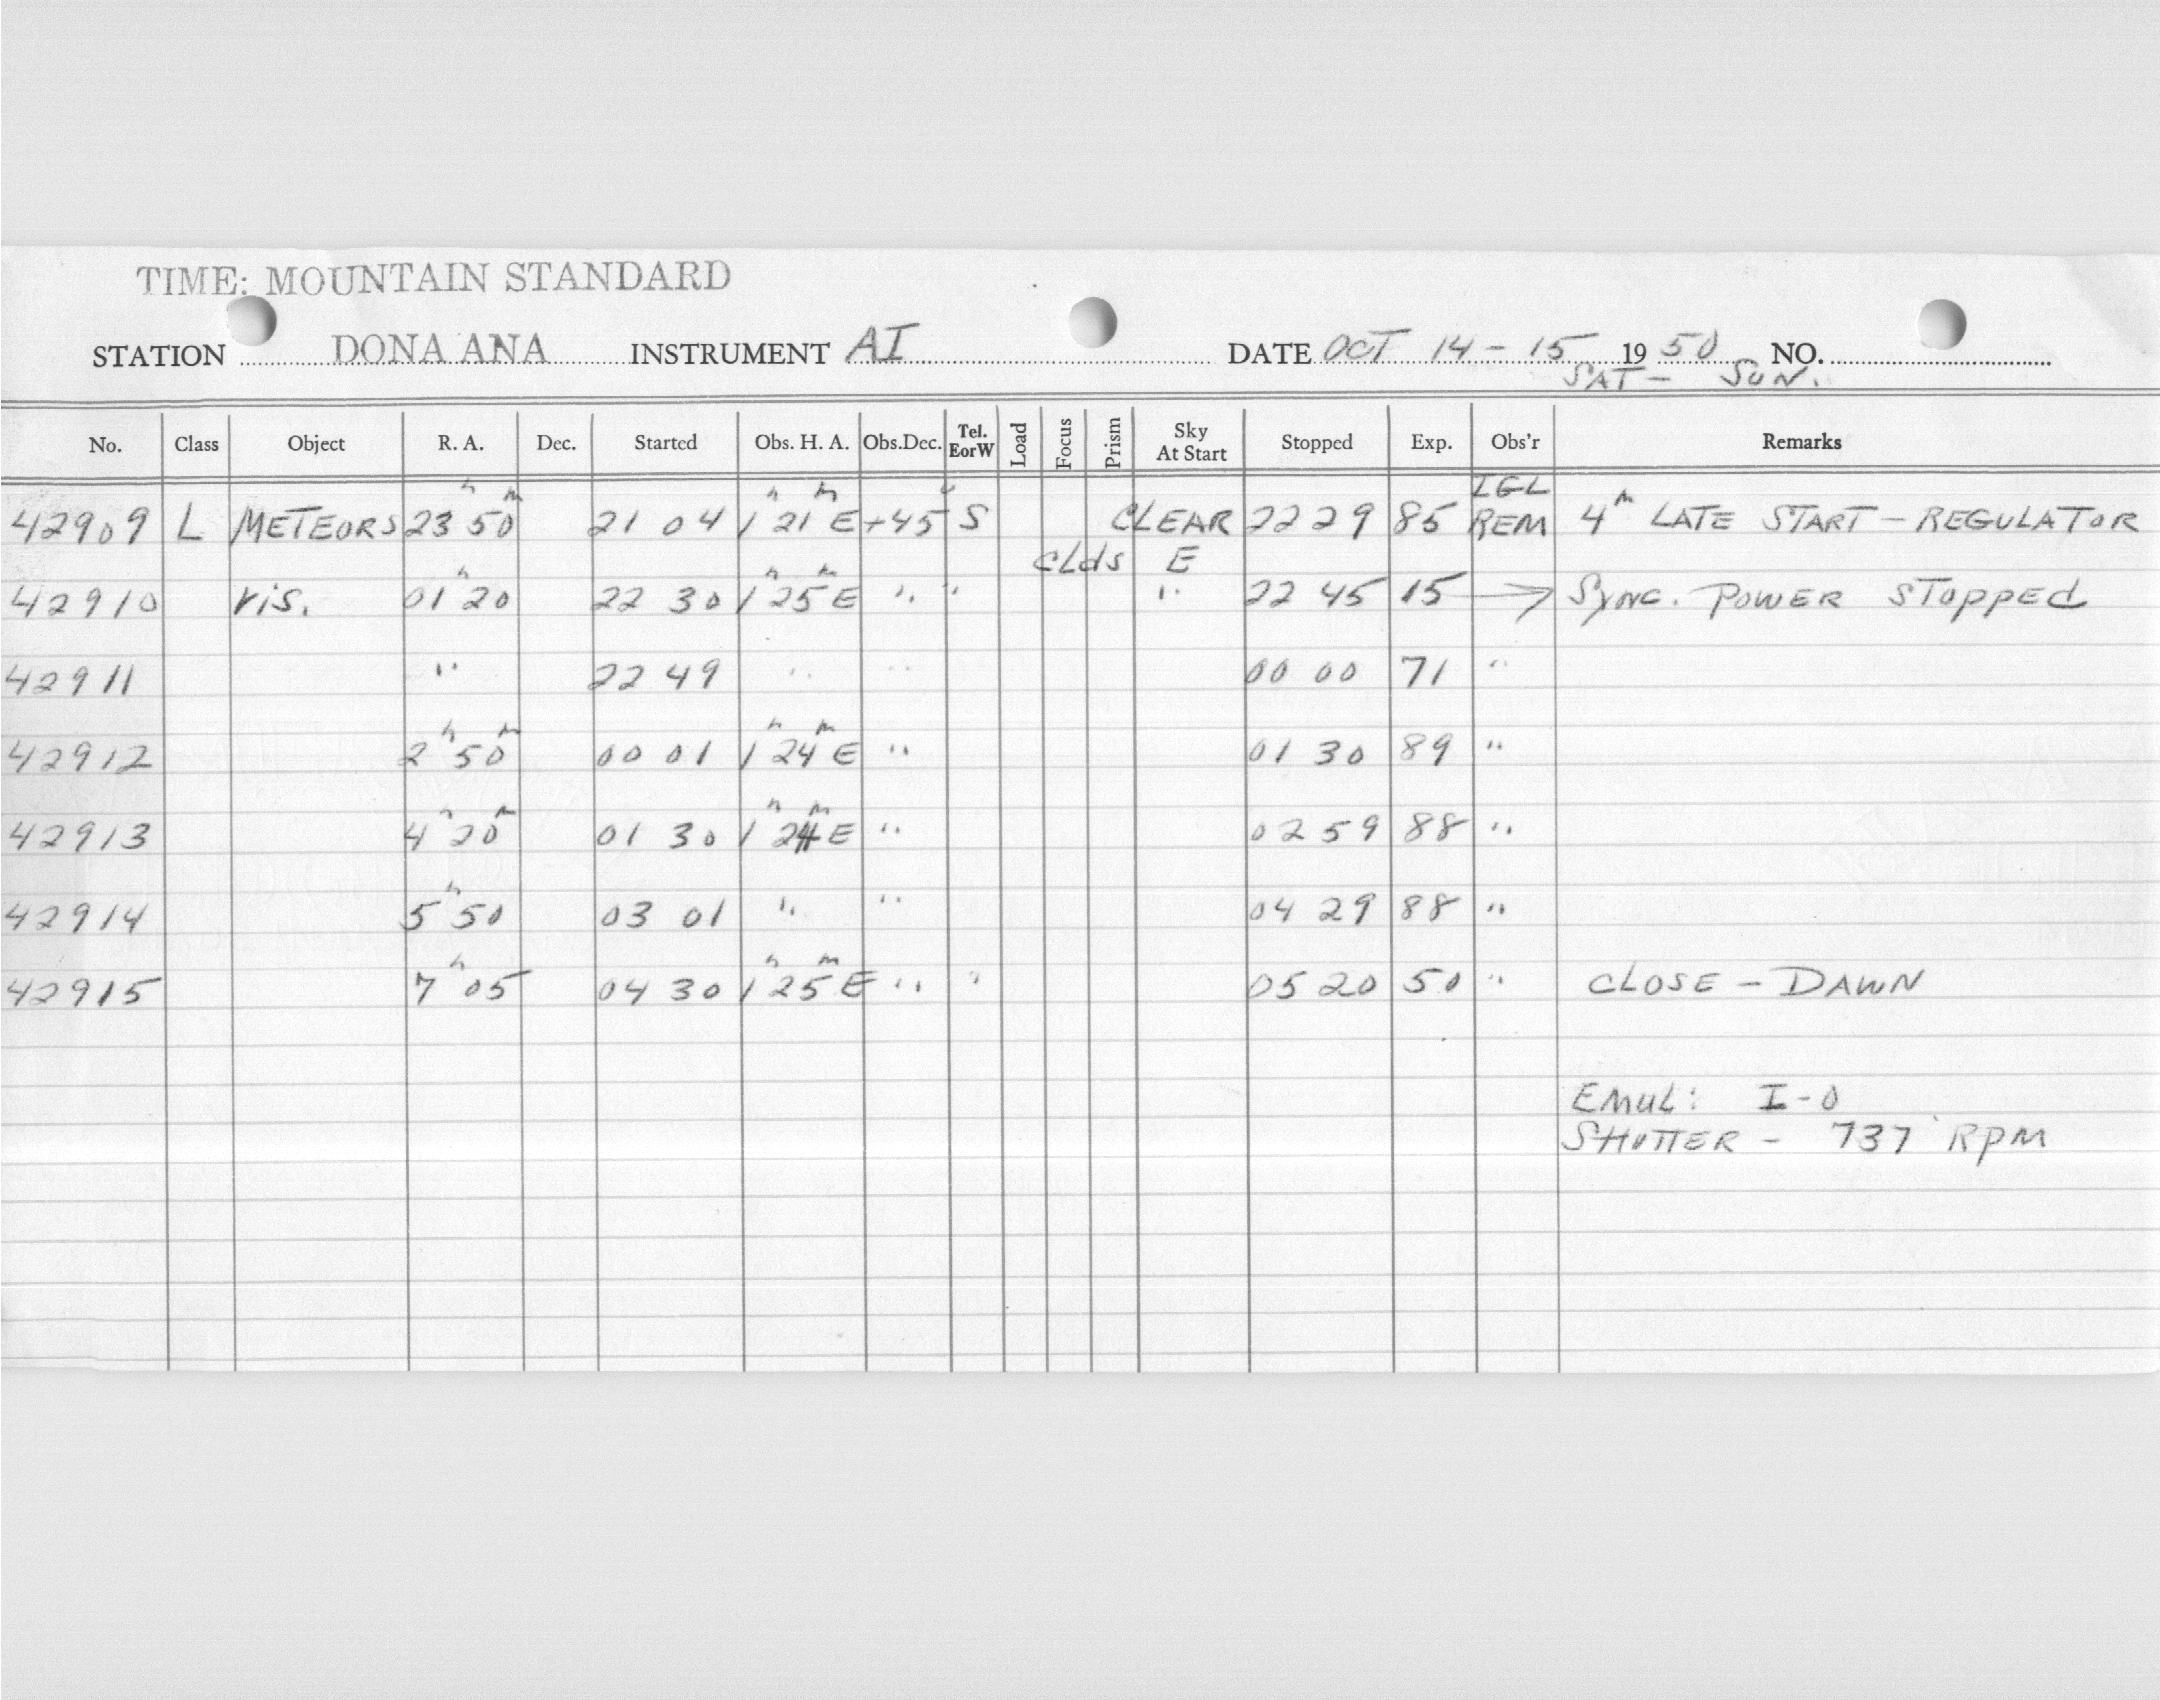 TIME: MOUNTAIN STANDARD
STATION DONA ANA INSTRUMENT AI DATE OCT 14 - 15 1950 NO.
SAT - SUN.
No. Class Object R. A. Dec. Started Obs. H. A. Obs.Dec. Tel. EorW Load Focus Prism Sky At Start Stopped Exp. Obs'r Remarks
42909 L METEORS 23h 50m 21 04 1h 21m E +45° S CLEAR 22 29 85 LGL REM 4m LATE START - REGULATOR
clds E
42910 vis. 01h 20 22 30 1h 25m E " " " 22 45 15 → SYNC. POWER STOPPED
42911 " 22 49 " " 00 00 71 "
42912 2h 50m 00 01 1h 24m E " 01 30 89 "
42913 4h 20m 01 30 1h 24m E " 02 59 88 "
42914 5h 50 03 01 " " 04 29 88 "
42915 7h 05 04 30 1h 25m E " " 05 20 50 " CLOSE - DAWN
EMUL: I-O
SHUTTER - 737 RPM